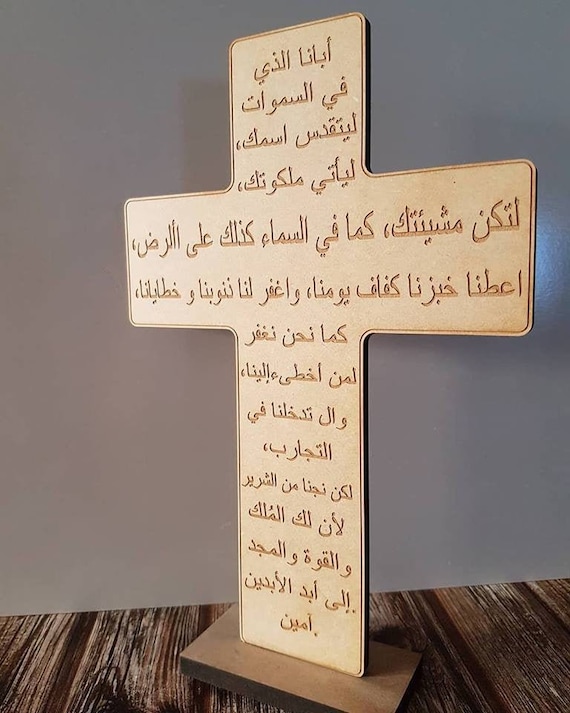 أبانا الذي
في السموات
ليتقدس اسمك،
ليأتي ملكوتك،
لتكن مشيئتك، كما في السماء كذلك على األرض،
اعطنا خبزنا كفاف يومنا، واغفر لنا ذنوبنا و خطايانا،
كما نحن نغفر
لمن أخطىءإلينا،
وال تدخلنا في
التجارب،
لكن نجنا من الشرير
لأن لك المُلك
والقوة والمجد
إلى أبد الأبدين.
آمين.